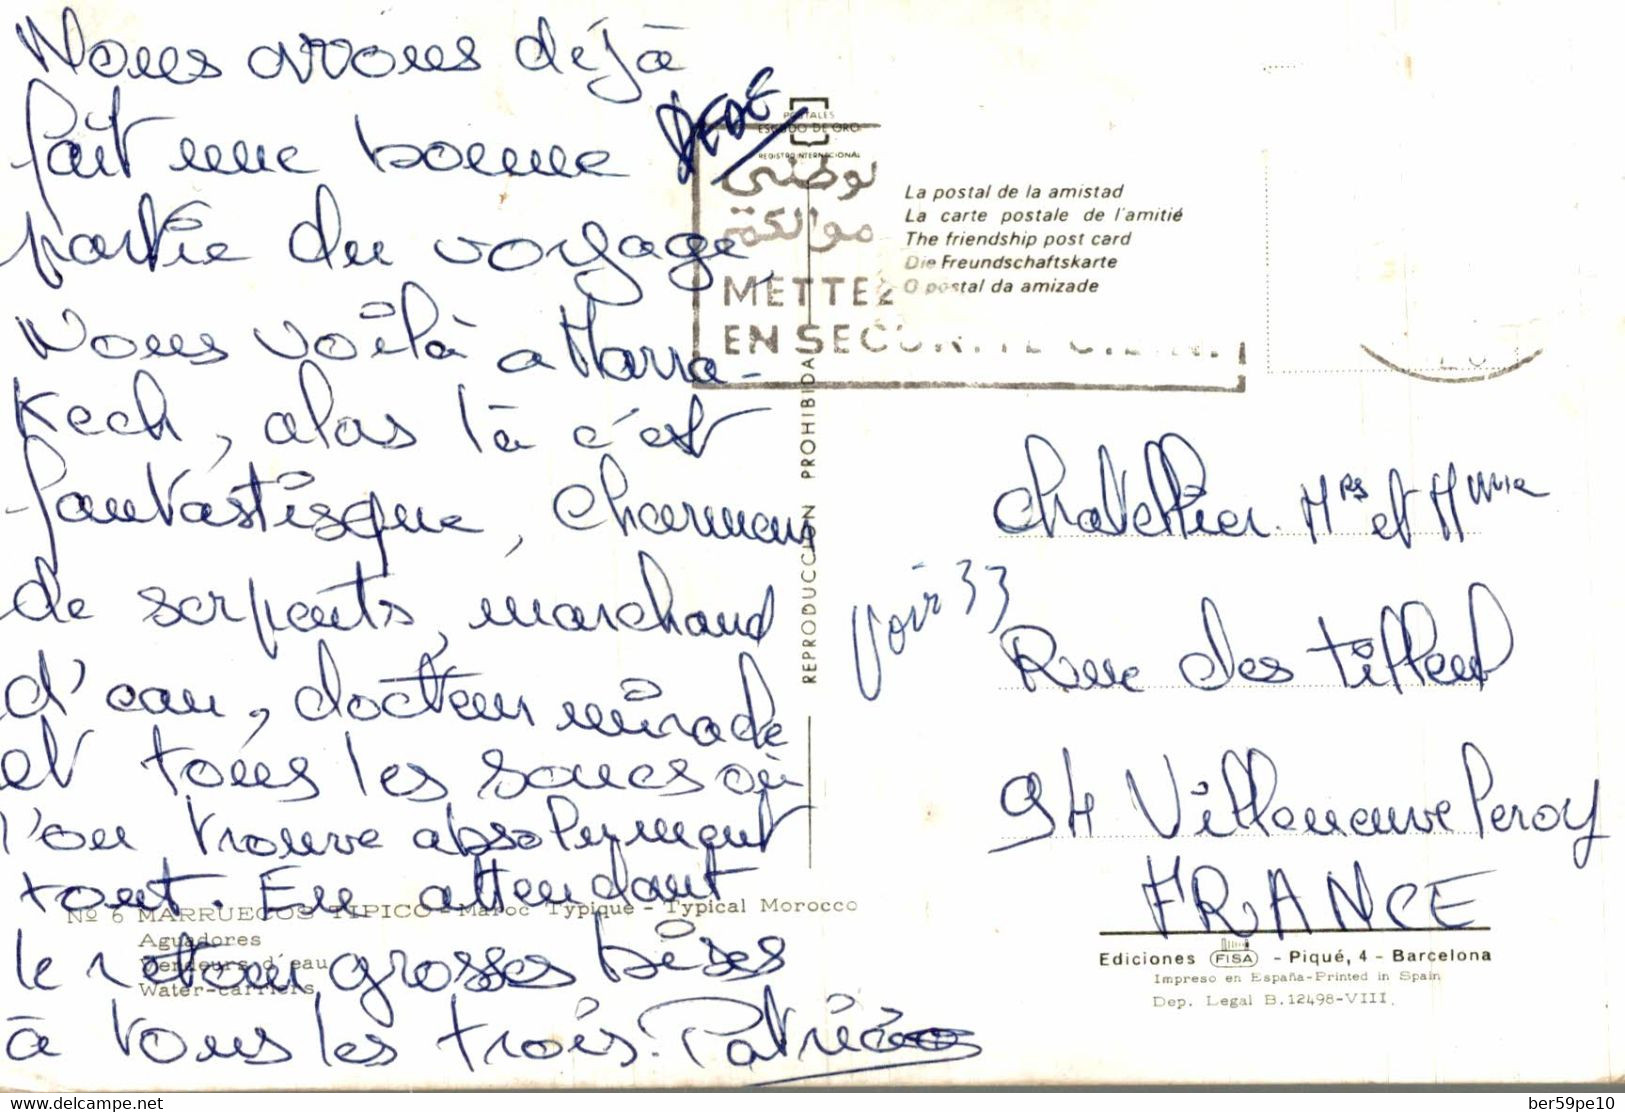 Nous avons déjà
fait une bonne
partie du voyage,
Nous voilà a Marra-
Kech, alas là c'est
fantastisque, charmeurs
de serpents, marchand
d'eau, docteur miracle
et tous les soucs où
l'on trouve absolument
tout. En attendant
le retour grosses bises
à tous les trois. Patrice
DEDE
POSTALES
ESCUDO DE ORO
REGISTRO INTERNACIONAL
METTEZ
EN SECURITE
La postal de la amistad
La carte postale de l'amitié
The friendship post card
Die Freundschaftskarte
O postal da amizade
REPRODUCCION PROHIBIDA
chatellier Mrs et Mme
voir 33
Rue des tilleul
94 Villeneuve leroy
FRANCE
No 6 MARRUECOS TIPICO - Maroc Typique - Typical Morocco
Aguadores
Vendeurs d'eau
Water-carriers
Ediciones FISA - Piqué, 4 - Barcelona
Impreso en España-Printed in Spain
Dep. Legal B. 12498-VIII
www.delcampe.net
ber59pe10